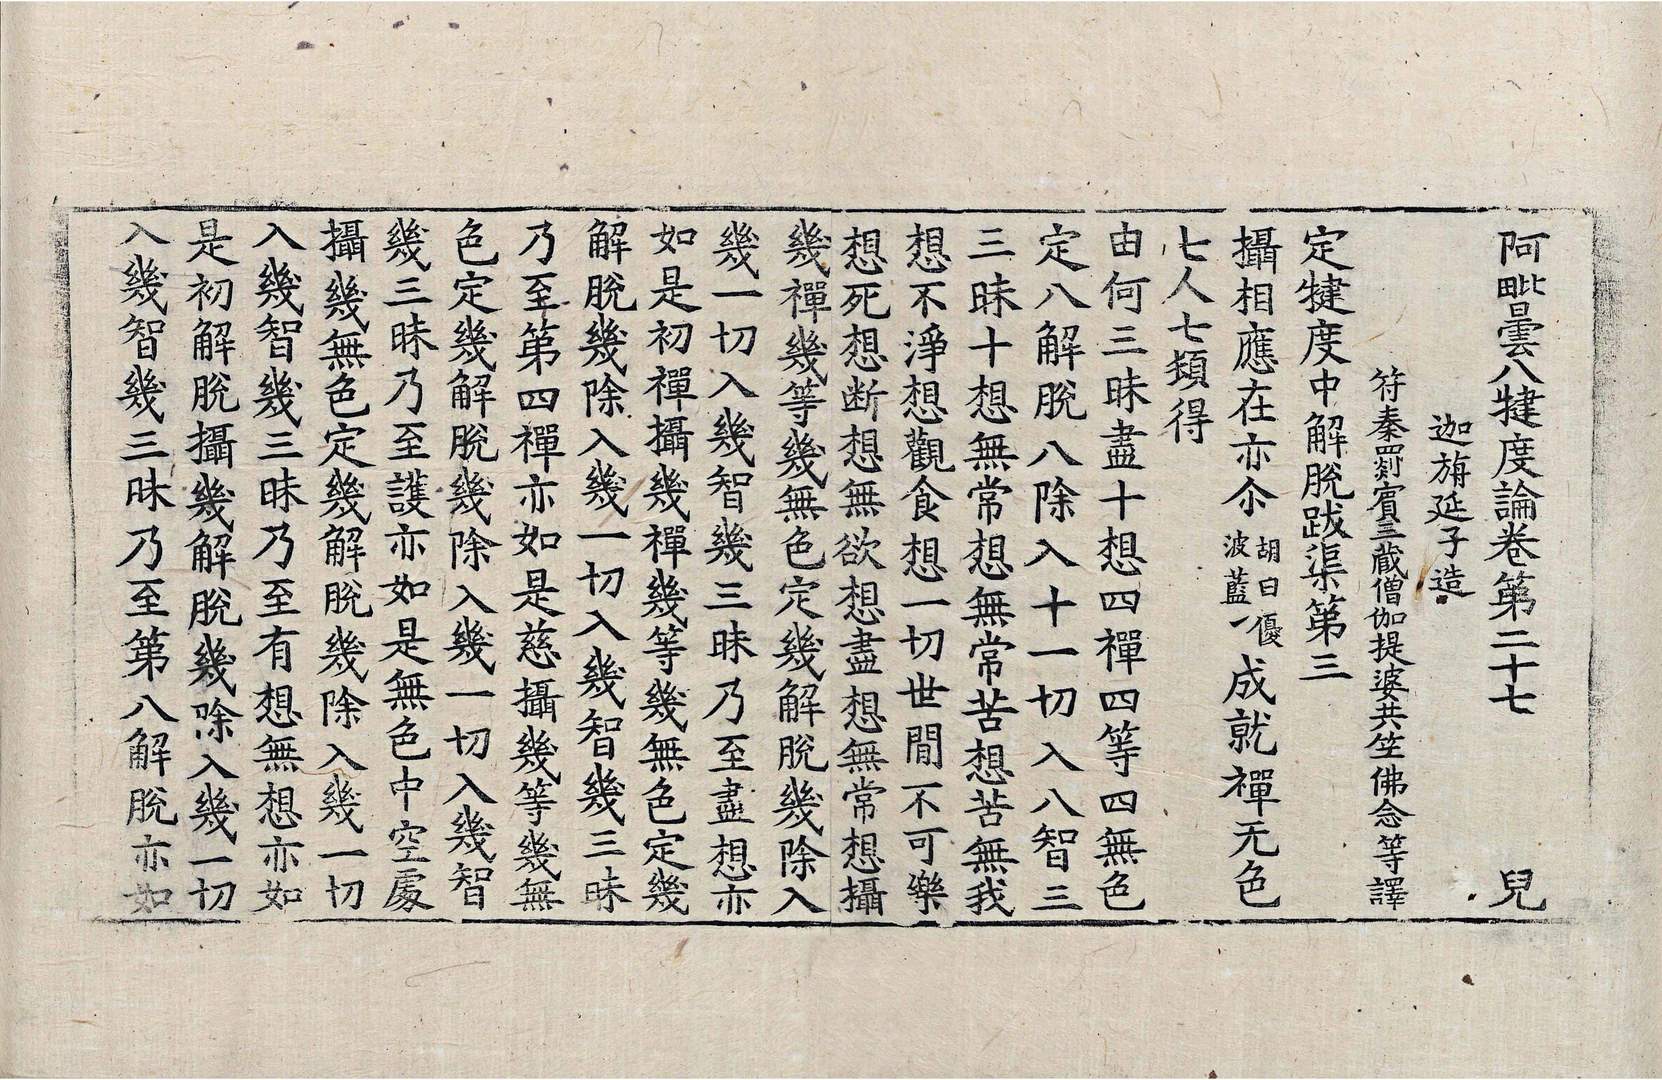 阿毗曇八犍度論卷第二十七 兒
迦旃延子造
符秦罽賓三藏僧伽提婆共竺佛念等譯
定犍度中解脫跋渠第三
攝相應在亦尒 胡曰優波藍 成就禪无色
七人七類得
由何三昧盡十想四禪四等四無色
定八解脫八除入十一切入八智三
三昧十想無常想無常苦想苦無我
想不淨想觀食想一切世間不可樂
想死想断想無欲想盡想無常想攝
幾禪幾等幾無色定幾解脫幾除入
幾一切入幾智幾三昧乃至盡想亦
如是初禪攝幾禪幾等幾無色定幾
解脫幾除入幾一切入幾智幾三昧
乃至第四禪亦如是慈攝幾等幾無
色定幾解脫幾除入幾一切入幾智
幾三昧乃至護亦如是無色中空處
攝幾無色定幾解脫幾除入幾一切
入幾智幾三昧乃至有想無想亦如
是初解脫攝幾解脫幾除入幾一切
入幾智幾三昧乃至第八解脫亦如